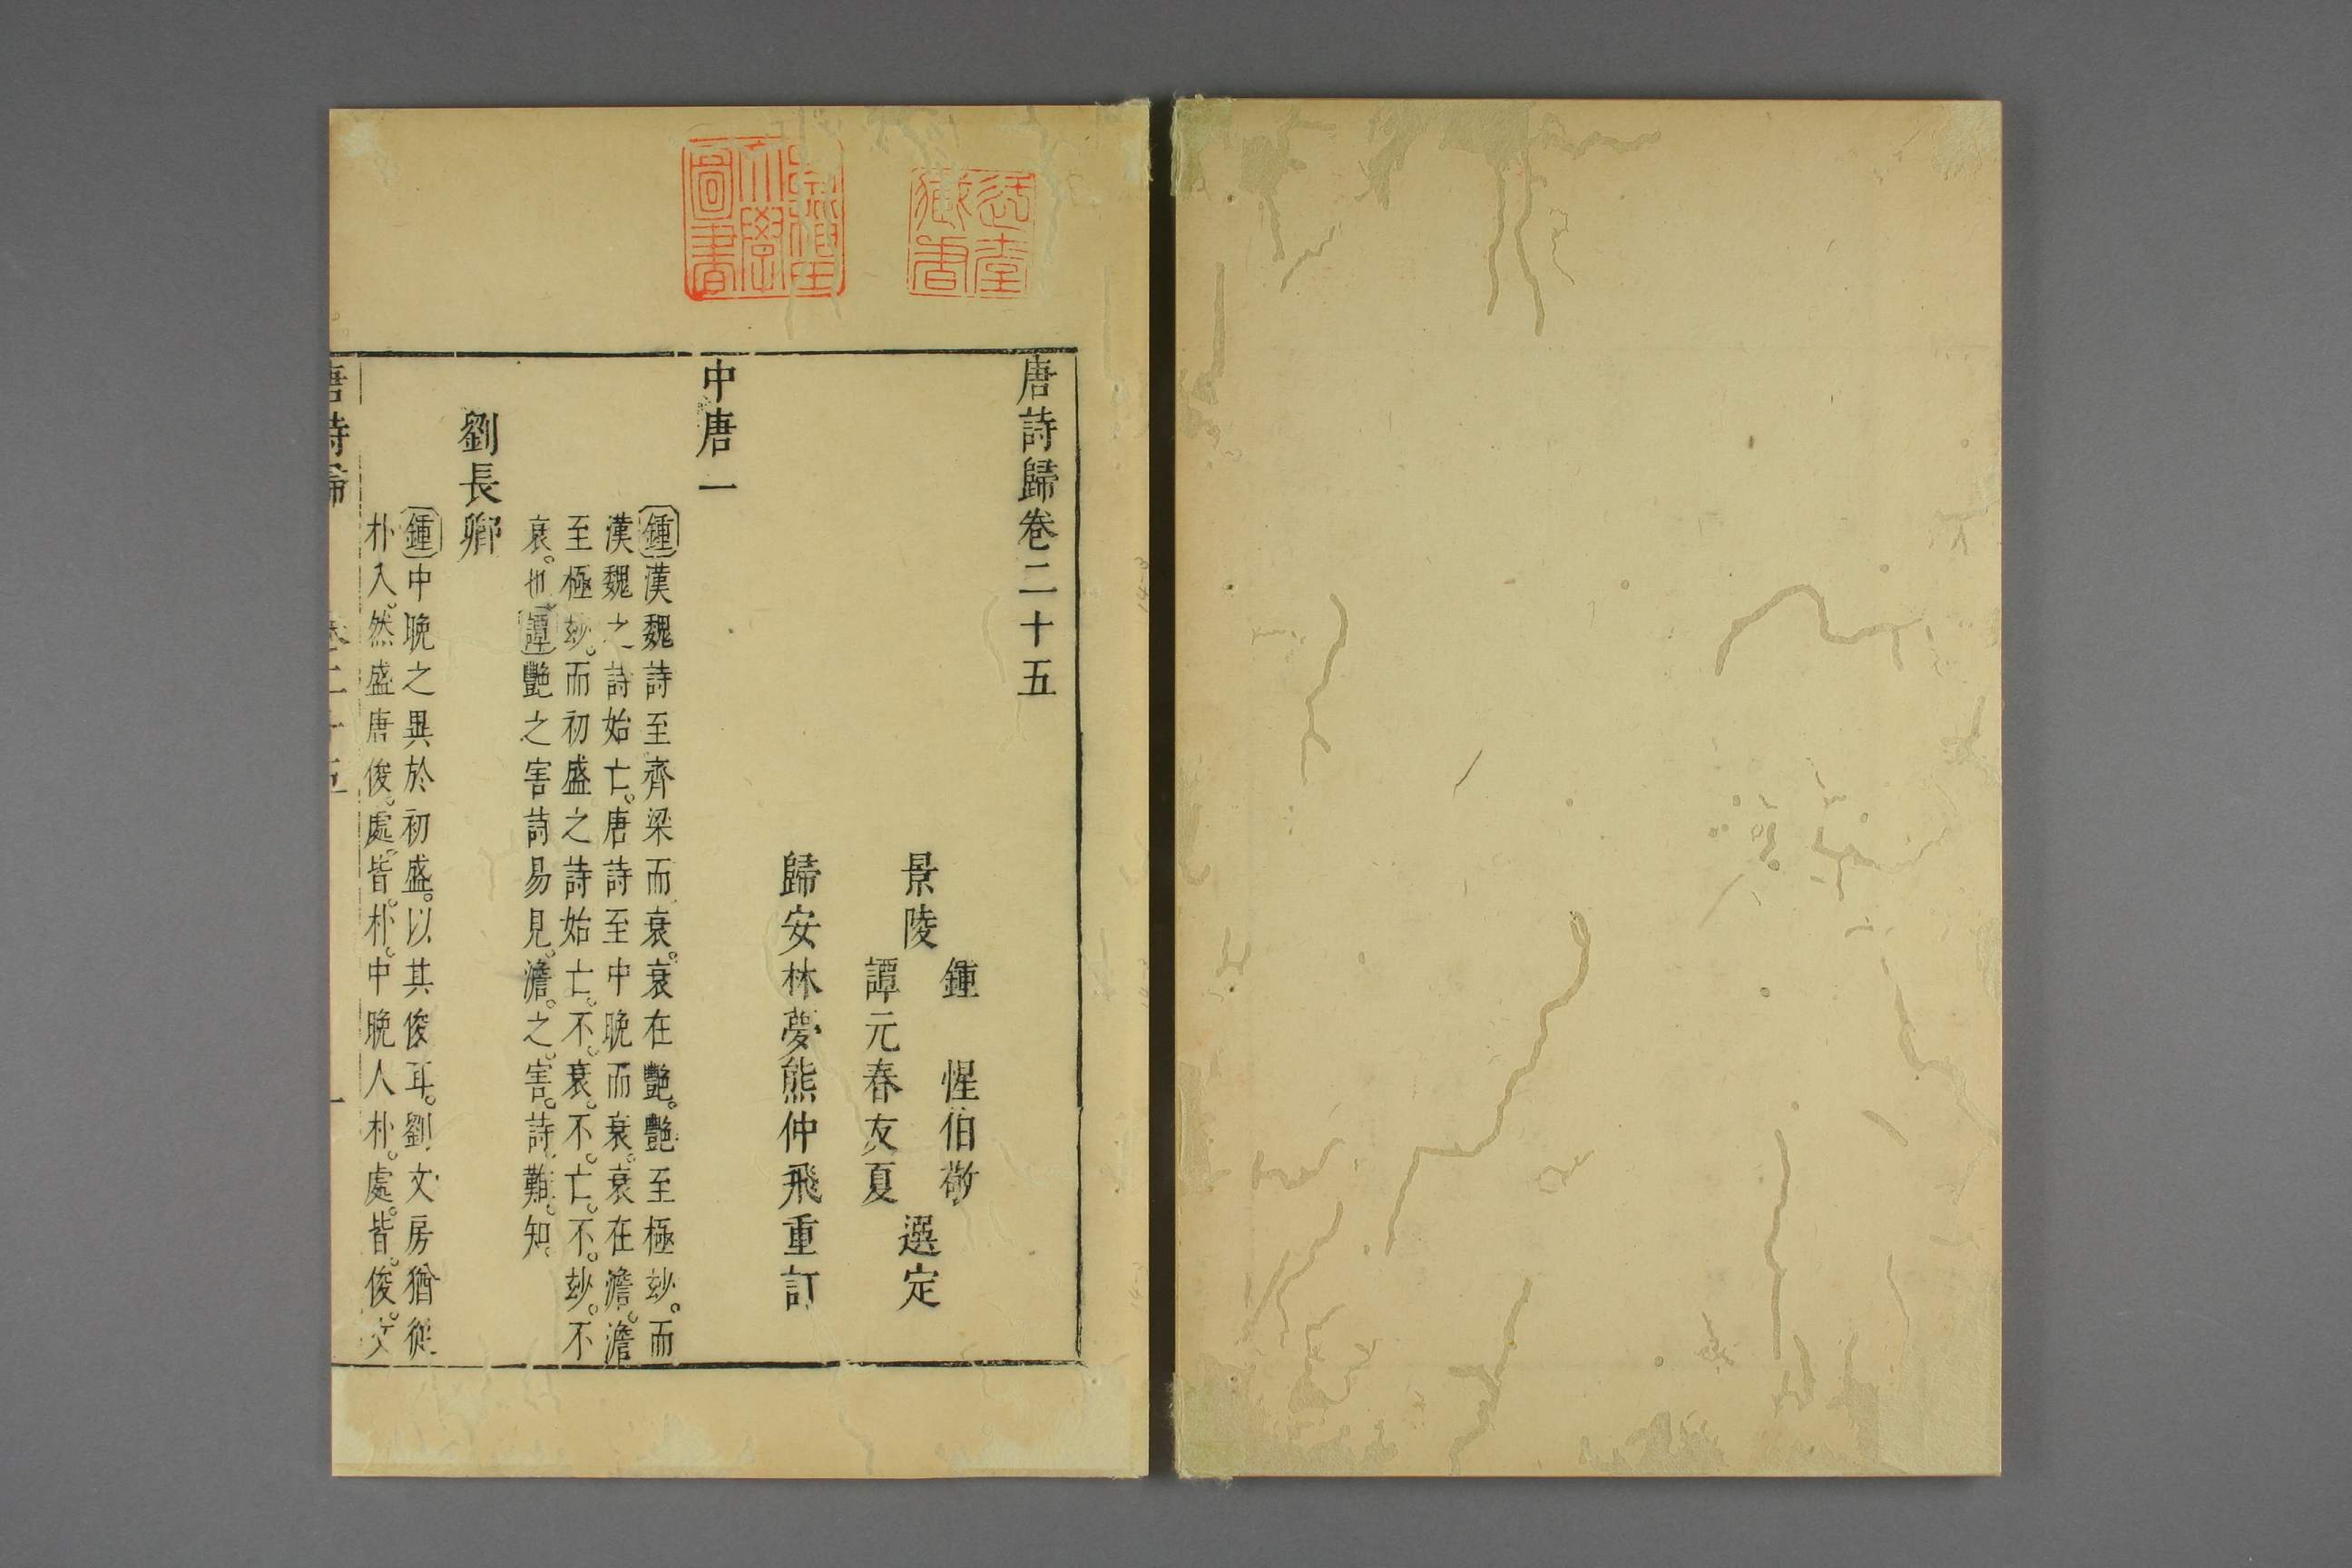 唐詩歸卷二十五
鍾 惺伯敬
景陵 選定
譚元春友夏
歸安林夢熊仲飛重訂
中唐一
鍾漢魏詩至齊梁而衰。衰在艷。艷至極玅。而
漢魏之詩始亡。唐詩至中晚而衰。衰在澹。澹
至極玅。而初盛之詩始亡。不衰。不亡。不玅。不
衰。也。譚艷之害詩易見。澹之害詩難知。
劉長卿
鍾中晚之異於初盛。以其俊耳。劉文房猶從
朴入。然盛唐俊處皆朴。中晚人朴處皆俊。文
唐詩歸 卷二十五 一
圖書
藏書